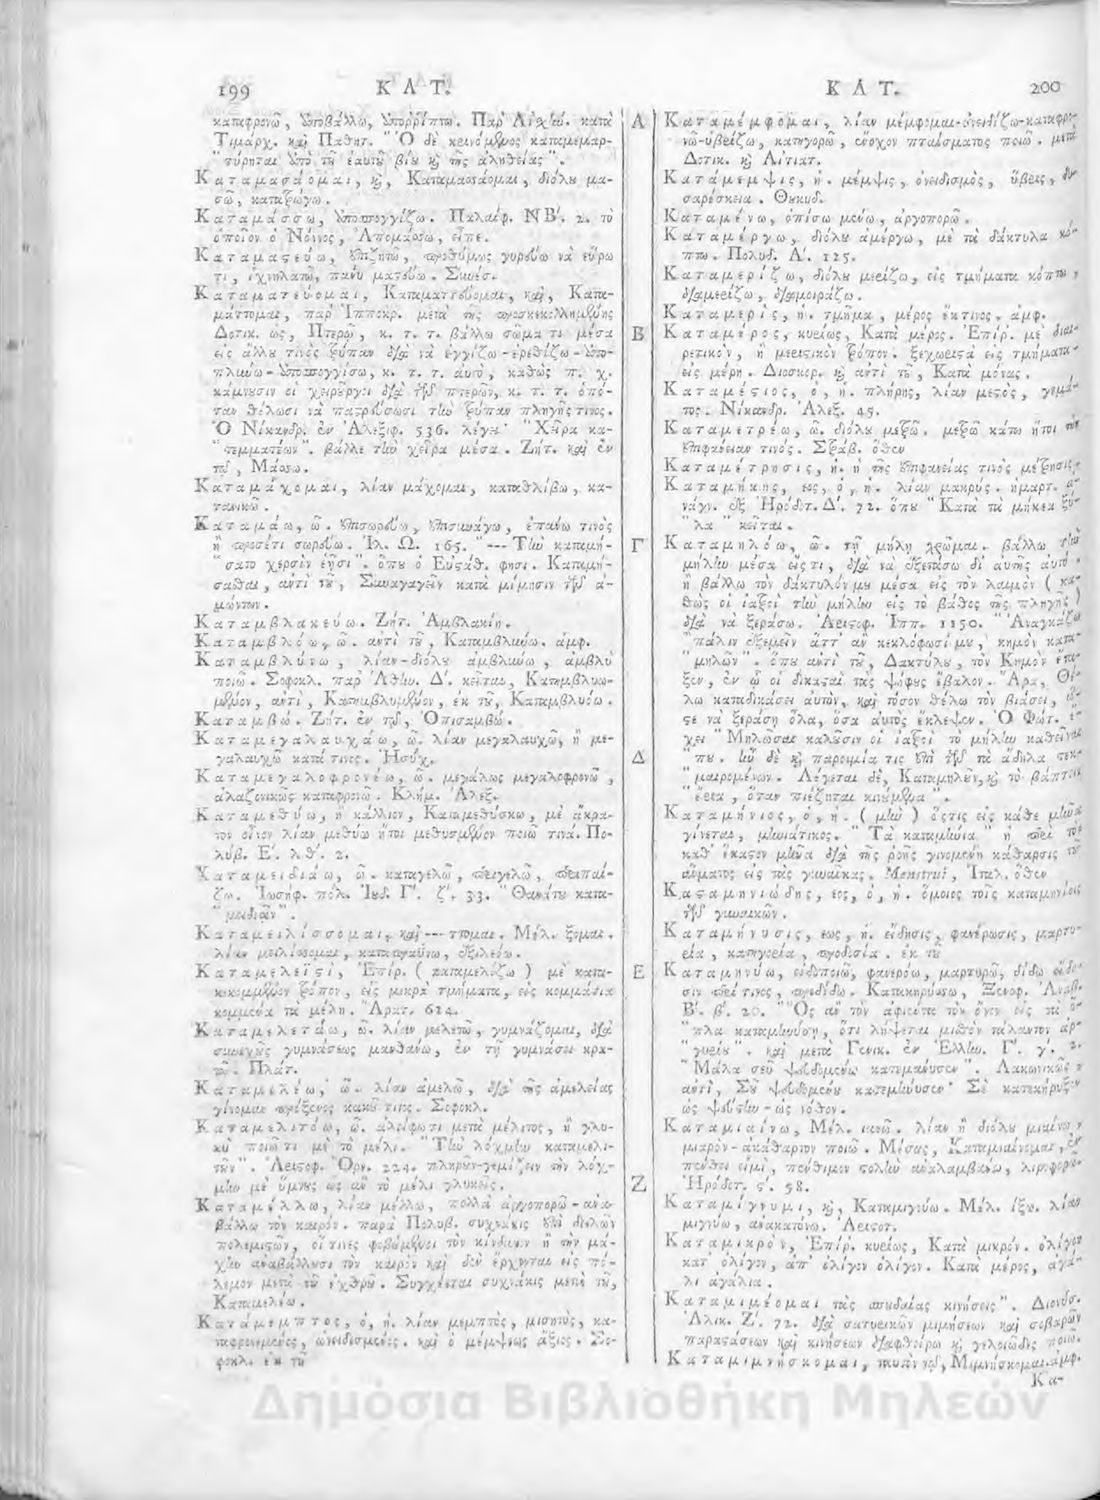 199 ΚΑΤ.
καταφρονῶ, ὑποβάλλω, ὑπορρίπτω. Παρ' Αἰσχίν. κατὰ
Τιμάρχ. καὶ Παθητ. "Ὁ δὲ κρινόμενος καταμεμαρ-
"τύρηται ὑπὸ τοῦ ἑαυτοῦ βίου καὶ τῆς ἀληθείας".
Καταμασάομαι, καὶ, Καταμασσάομαι, διόλου μα-
σῶ, κατατρώγω.
Καταμάσσω, ὑποσπογγίζω. Παλαίφ. ΝΒ'. 2. τὸ
ὁποῖον ὁ Νόννος, Ἀπομάσσω, εἶπε.
Καταμαστεύω, ἐπιζητῶ, προθύμως γυρεύω νὰ εὕρω
τι, ἰχνηλατῶ, πάνυ ματεύω. Συνέσ.
Καταματεύομαι, Καταματτεύομαι, καὶ, Κατα-
μάττομαι, παρ' Ἱπποκρ. μετὰ τῆς προσκεκολλημένης
Δοτικ. ὡς, Πτερῷ, κ. τ. τ. βάλλω σῶμά τι μέσα
εἰς ἄλλου τινὸς τρύπαν διὰ νὰ ἐγγίζω-ἐρεθίζω-ὑπο-
πλύνω-ὑποσπογγίσω, κ. τ. τ. αὐτὸ, καθὼς π. χ.
κάμνουσιν οἱ χειρῦργοι διὰ τῶν πτερῶν, κ. τ. τ. ὁπό-
ταν θέλωσι νὰ παστρεύσωσι τὴν τρύπαν πληγῆς τινος.
Ὁ Νίκανδρ. ἐν Ἀλεξιφ. 536. λέγει "Χεῖρα κα-
"τεμματέων". βάλλε τὴν χεῖρα μέσα. Ζήτ. καὶ ἐν
τῷ, Μάσσω.
Καταμάχομαι, λίαν μάχομαι, καταθλίβω, κα-
τανικῶ.
Καταμάω, ῶ. ἐπισωρεύω, ἐπισυνάγω, ἐπάνω τινὸς
ἢ προσέτι σωρεύω. Ἰλ. Ω. 165. "--- Τὴν καταμή-
"σατο χερσὶν ἑῇσι". ὅπου ὁ Εὐστάθ. φησι. Καταμή-
σασθαι, ἀντὶ τοῦ, Συναγαγεῖν κατὰ μίμησιν τῶν ἀ-
μώντων.
Καταμβλακεύω. Ζήτ. Ἀμβλακίη.
Καταμβλόω, ῶ. ἀντὶ τοῦ, Καταμβλύνω. ἀμφ.
Καταμβλύνω, λίαν-διόλου ἀμβλύνω, ἀμβλὺ
ποιῶ. Σοφοκλ. παρ' Ἀθην. Δ'. κεῖται, Κατημβλυω-
μένον, ἀντὶ, Κατημβλυμμένον, ἐκ τοῦ, Καταμβλυόω.
Καταμβῶ. Ζήτ. ἐν τῷ, Ὀπισαμβώ.
Καταμεγαλαυχάω, ῶ. λίαν μεγαλαυχῶ, ἢ με-
γαλαυχῶ κατά τινος. Ἡσύχ.
Καταμεγαλοφρονέω, ῶ. μεγάλως μεγαλοφρονῶ,
ἀλαζονικῶς καταφρονῶ. Κλήμ. Ἀλεξ.
Καταμεθύω, ἢ κάλλιον, Καταμεθύσκω, μὲ ἄκρα-
τον οἶνον λίαν μεθύω ἤτοι μεθυσμένον ποιῶ τινά. Πο-
λύβ. Ε'. λθ'. 2.
Καταμειδιάω, ῶ. καταγελῶ, περιγελῶ, περιπαί-
ζω. Ἰωσήφ. πόλ. Ἰουδ. Γ'. ζ'. 33. "Θανάτου κατα-
"μειδιᾶν".
Καταμειλίσσομαι, καὶ---ττομαι. Μέλ. ξομαι.
λίαν μειλίσσομαι, καταπραΰνω, ἐξιλεόω.
Καταμελεϊστὶ, Ἐπίρ. (καταμελίζω) μὲ κατα-
κεκομμένον τρόπον, εἰς μικρὰ τμήματα, εἰς κομμάτια
κομμένα τὰ μέλη. Ἄρατ. 624.
Καταμελετάω, ῶ. λίαν μελετῶ, γυμνάζομαι, διὰ
συνεχῆς γυμνάσεως μανθάνω, ἐν τῇ γυμνάσει κρα-
τῶ. Πλάτ.
Καταμελέω, ῶ. λίαν ἀμελῶ, διὰ τῆς ἀμελείας
γίνομαι πρόξενος κακοῦ τινος. Σοφοκλ.
Καταμελιτόω, ῶ. ἀλείφω τι μετὰ μέλιτος, ἢ γλυ-
κὺ ποιῶ τι μὲ τὸ μέλι. "Τὴν λόχμην καταμελι-
τῶν". Ἀριστοφ. Ὀρν. 224. πληρῶν-γεμίζειν τὴν λόχ-
μην μὲ ὕμνους ὡς ἂν τὸ μέλι γλυκεῖς.
Καταμέλλω, λίαν μέλλω, πολλὰ ἀργοπορῶ-ἀνα-
βάλλω τὸν καιρόν. παρὰ Πολυβ. συχνάκις ἐπὶ δειλῶν
πολεμιστῶν, οἵ τινες φοβώμενοι τὸν κίνδυνον ἢ τὴν μά-
χην ἀναβάλλουσι τὸν καιρὸν καὶ δὲν ἔρχονται εἰς πό-
λεμον μετὰ τοῦ ἐχθροῦ. Συγχέεται συχνάκις μετὰ τοῦ,
Καταμελέω.
Κατάμεμπτος, ὁ, ἡ. λίαν μεμπτὸς, μισητὸς, κα-
ταφρονεμένος, ὠνειδισμένος. καὶ ὁ μέμψεως ἄξιος. Σο-
φοκλ. ἐκ τοῦ
Α
Β
Γ
Δ
Ε
Ζ
ΚΑΤ. 200
Καταμέμφομαι, λίαν μέμφομαι-ὀνειδίζω-καταφρο-
νῶ-ὑβρίζω, κατηγορῶ, ἔνοχον πταίσματος ποιῶ. μετὰ
Δοτικ. καὶ Αἰτιατ.
Κατάμεμψις, ἡ. μέμψις, ὀνειδισμὸς, ὕβρις, δυ-
σαρέσκεια. Θουκυδ.
Καταμένω, ὀπίσω μένω, ἀργοπορῶ.
Καταμέργω, διόλου ἀμέργω, μὲ τὰ δάκτυλα κό-
πτω. Πολυδ. Α'. 125.
Καταμερίζω, διόλου μερίζω, εἰς τμήματα κόπτω,
διαμερίζω, διαμοιράζω.
Καταμερὶς, ἡ. τμῆμα, μέρος ἕκτινος. ἀμφ.
Καταμέρος, κυρίως, Κατὰ μέρος. Ἐπίρ. μὲ διαι-
ρετικὸν, ἢ μεριστικὸν τρόπον. ξεχωριστὰ εἰς τμήματα-
εἰς μέρη. Διοσκορ. καὶ ἀντὶ τοῦ, Κατὰ μόνας.
Καταμέστιος, ὁ, ἡ. πλήρης, λίαν μεστὸς, γεμά-
τος. Νίκανδρ. Ἀλεξ. 45.
Καταμετρέω, ῶ. διόλου μετρῶ. μετρῶ κάτω ἤτοι τὴν
ἐπιφάνειαν τινός. Στράβ. ὅθεν
Καταμέτρησις, ἡ. ἡ τῆς ἐπιφανείας τινὸς μέτρησις.
Καταμήκης, εος, ὁ, ἡ. λίαν μακρύς. ἡμαρτ. ἀ-
νάγν. ἐξ Ἡρόδοτ. Δ'. 72. ὅπου "Κατὰ τὰ μήκεα ξύ-
"λα" κεῖται.
Καταμηλόω, ῶ. τῇ μήλῃ χρῶμαι. βάλλω τὴν
μήλην μέσα εἴς τι, διὰ νὰ ἐξετάσω δι' αὐτῆς αὐτό.
ἢ βάλλω τὸν δάκτυλόν μου μέσα εἰς τὸν λαιμὸν (κα-
θὼς οἱ ἰατροὶ τὴν μήλην εἰς τὸ βάθος τῆς πληγῆς)
διὰ νὰ ξεράσω. Ἀριστοφ. Ἱππ. 1150. "Ἀναγκάζω
"πάλιν ἐξεμεῖν ἅττ' ἂν κεκλόφωσί μου, κημὸν κατα-
"μηλῶν". ὅπου ἀντὶ τοῦ, Δακτύλου, τὸν Κημὸν ἔτα-
ξεν, ἐν ᾧ οἱ δικασταὶ τὰς ψήφους ἔβαλον. Ἄρα, Θέ-
λω καταδικάσει αὐτὸν, καὶ τόσον θέλω τὸν βιάσει, ὥ-
στε νὰ ξεράσῃ ὅλα, ὅσα αὐτὸς ἔκλεψεν. Ὁ Φώτ. ἔ-
χει "Μηλῶσαι καλοῦσιν οἱ ἰατροὶ τὸ μήλην καθεῖναί
"που. ἦν δὲ καὶ παροιμία τις ἐπὶ τῶν τὰ ἄδηλα τεκ-
"μαιρομένων. Λέγεται δὲ, Καταμηλοῦν, καὶ τὸ βάπτειν
"ἔρια, ὅταν πιέζηται κινούμενα".
Καταμήνιος, ὁ, ἡ. (μὴν) ὅστις εἰς κάθε μῆνα
γίνεται, μηνιάτικος. "Τὰ καταμήνια" ἡ περὶ τὸν
καθ' ἕκαστον μῆνα διὰ τῆς ῥοῆς γινομένη κάθαρσις τοῦ
αἵματος εἰς τὰς γυναῖκας. Menstrui, Ἰταλ. ὅθεν
Καταμηνιώδης, εος, ὁ, ἡ. ὅμοιος τοῖς καταμηνίοις
τῶν γυναικῶν.
Καταμήνυσις, εως, ἡ. εἴδησις, φανέρωσις, μαρτυ-
ρία, κατηγορία, προδοσία. ἐκ τοῦ
Καταμηνύω, εἰδοποιῶ, φανερόω, μαρτυρῶ, δίδω εἴδη-
σιν περί τινος, προδίδω. Κατακηρύσσω, Ξενοφ. Ἀναβ.
Β'. β'. 20. "Ὃς ἂν τὸν ἀφιέντα τὸν ὄνον εἰς τὰ ὅ-
"πλα καταμηνύσῃ, ὅτι λήψεται μισθὸν τάλαντον ἀρ-
"γυρίου". καὶ μετὰ Γενικ. ἐν Ἑλλην. Γ'. γ'. 2.
"Μάλα σεῦ ψευδομένω κατεμάνυσεν". Λακωνικῶς
ἀντὶ, Σοῦ ψευδομένου κατεμήνυσεν Σὲ κατεκήρυξεν
ὡς ψεύστην-ὡς νόθον.
Καταμιαίνω, Μέλ. ιανῶ. λίαν ἢ διόλου μιαίνω,
μιαρὸν-ἀκάθαρτον ποιῶ. Μέσος, Καταμιαίνομαι, ἐν
πένθει εἰμὶ, πένθιμον στολὴν ἀναλαμβάνω, λιροφορῶ.
Ἡρόδοτ. ς'. 58.
Καταμίγνυμι, καὶ, Καταμιγνύω. Μέλ. ίξω. λίαν
μιγνύω, ἀνακατόνω. Ἀριστοτ.
Καταμικρὸν, Ἐπίρ. κυρίως, Κατὰ μικρόν. ὀλίγον
κατ' ὀλίγον, ἀπ' ὀλίγον ὀλίγον. Κατὰ μέρος, ἀγά-
λι ἀγάλια.
Καταμιμέομαι τὰς σπυδαίας κινήσεις". Διονύσ.
Ἁλικ. Ζ'. 72. διὰ σατυρικῶν μιμήσεων καὶ σοβαρῶν
παραστάσεων καὶ κινήσεων διαφθείρω καὶ γελοιώδες ποιῶ.
Καταμιμνήσκομαι, ταυτὸν τῷ, Μιμνήσκομαι. ἀμφ.
Κα-
Δημόσια Βιβλιοθήκη Μηλεών